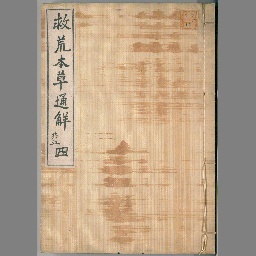 救荒本草通解 四